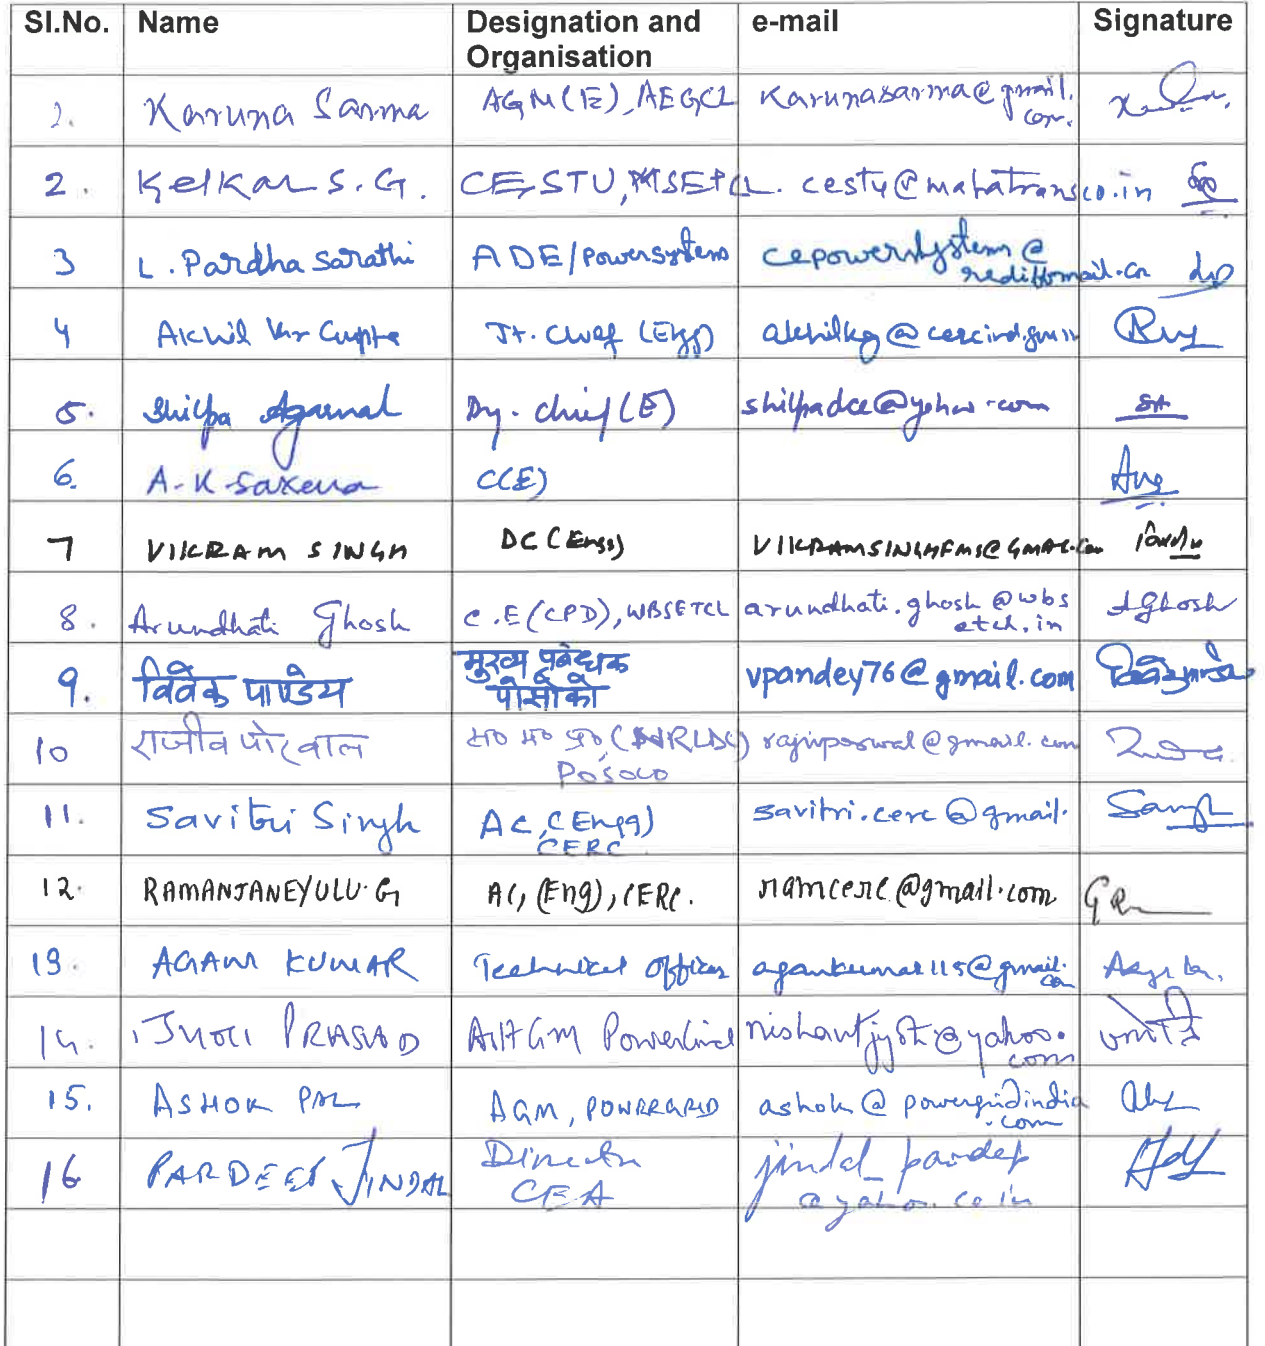 Sl.No. Name Designation and Organisation e-mail Signature
1. Karuna Sarma AGM(E), AEGCL karunasarma@gmail.com.
2. Kelkar S.G. CE, STU, MSETCL. cestu@mahatransco.in
3 L. Pardha Sarathi ADE/Powersystems cepowersystems@rediffmail.com
4 Akhil Kr Gupta Jt. Chief (Engg) akhilkg@cercind.gov.in
5. Shilpa Agarwal Dy. chief (E) shilpadce@yahoo.com
6. A-K-Saxena C(E)
7 VIKRAM SINGH DC (Engg) VIKRAMSINGHFMS@GMAIL.Com
8. Arundhati Ghosh C.E (CPD), WBSETCL arundhati.ghosh@wbsetcl.in AGhosh
9. विवेक पाण्डेय मुख्य प्रबंधक पोसोको vpandey76@gmail.com
10 राजीव पोरवाल (NRLDC) POSOCO rajivporwal@gmail.com
11. Savitri Singh AC, (Engg) CERC savitri.cerc@gmail.
12. RAMANJANEYULU.G AC, (Eng), CERC. ramcerc@gmail.com
13. AGAM KUMAR Technical Officer agamkumar115@gmail.com
14. JYOTI PRASAD nishantjyoti@yahoo.com ज्योति
15. ASHOK PAL AGM, POWERGRID ashok@powergridindia.com
16 PARDEEP JINDAL Director CEA jindal_pardep@yahoo.co.in